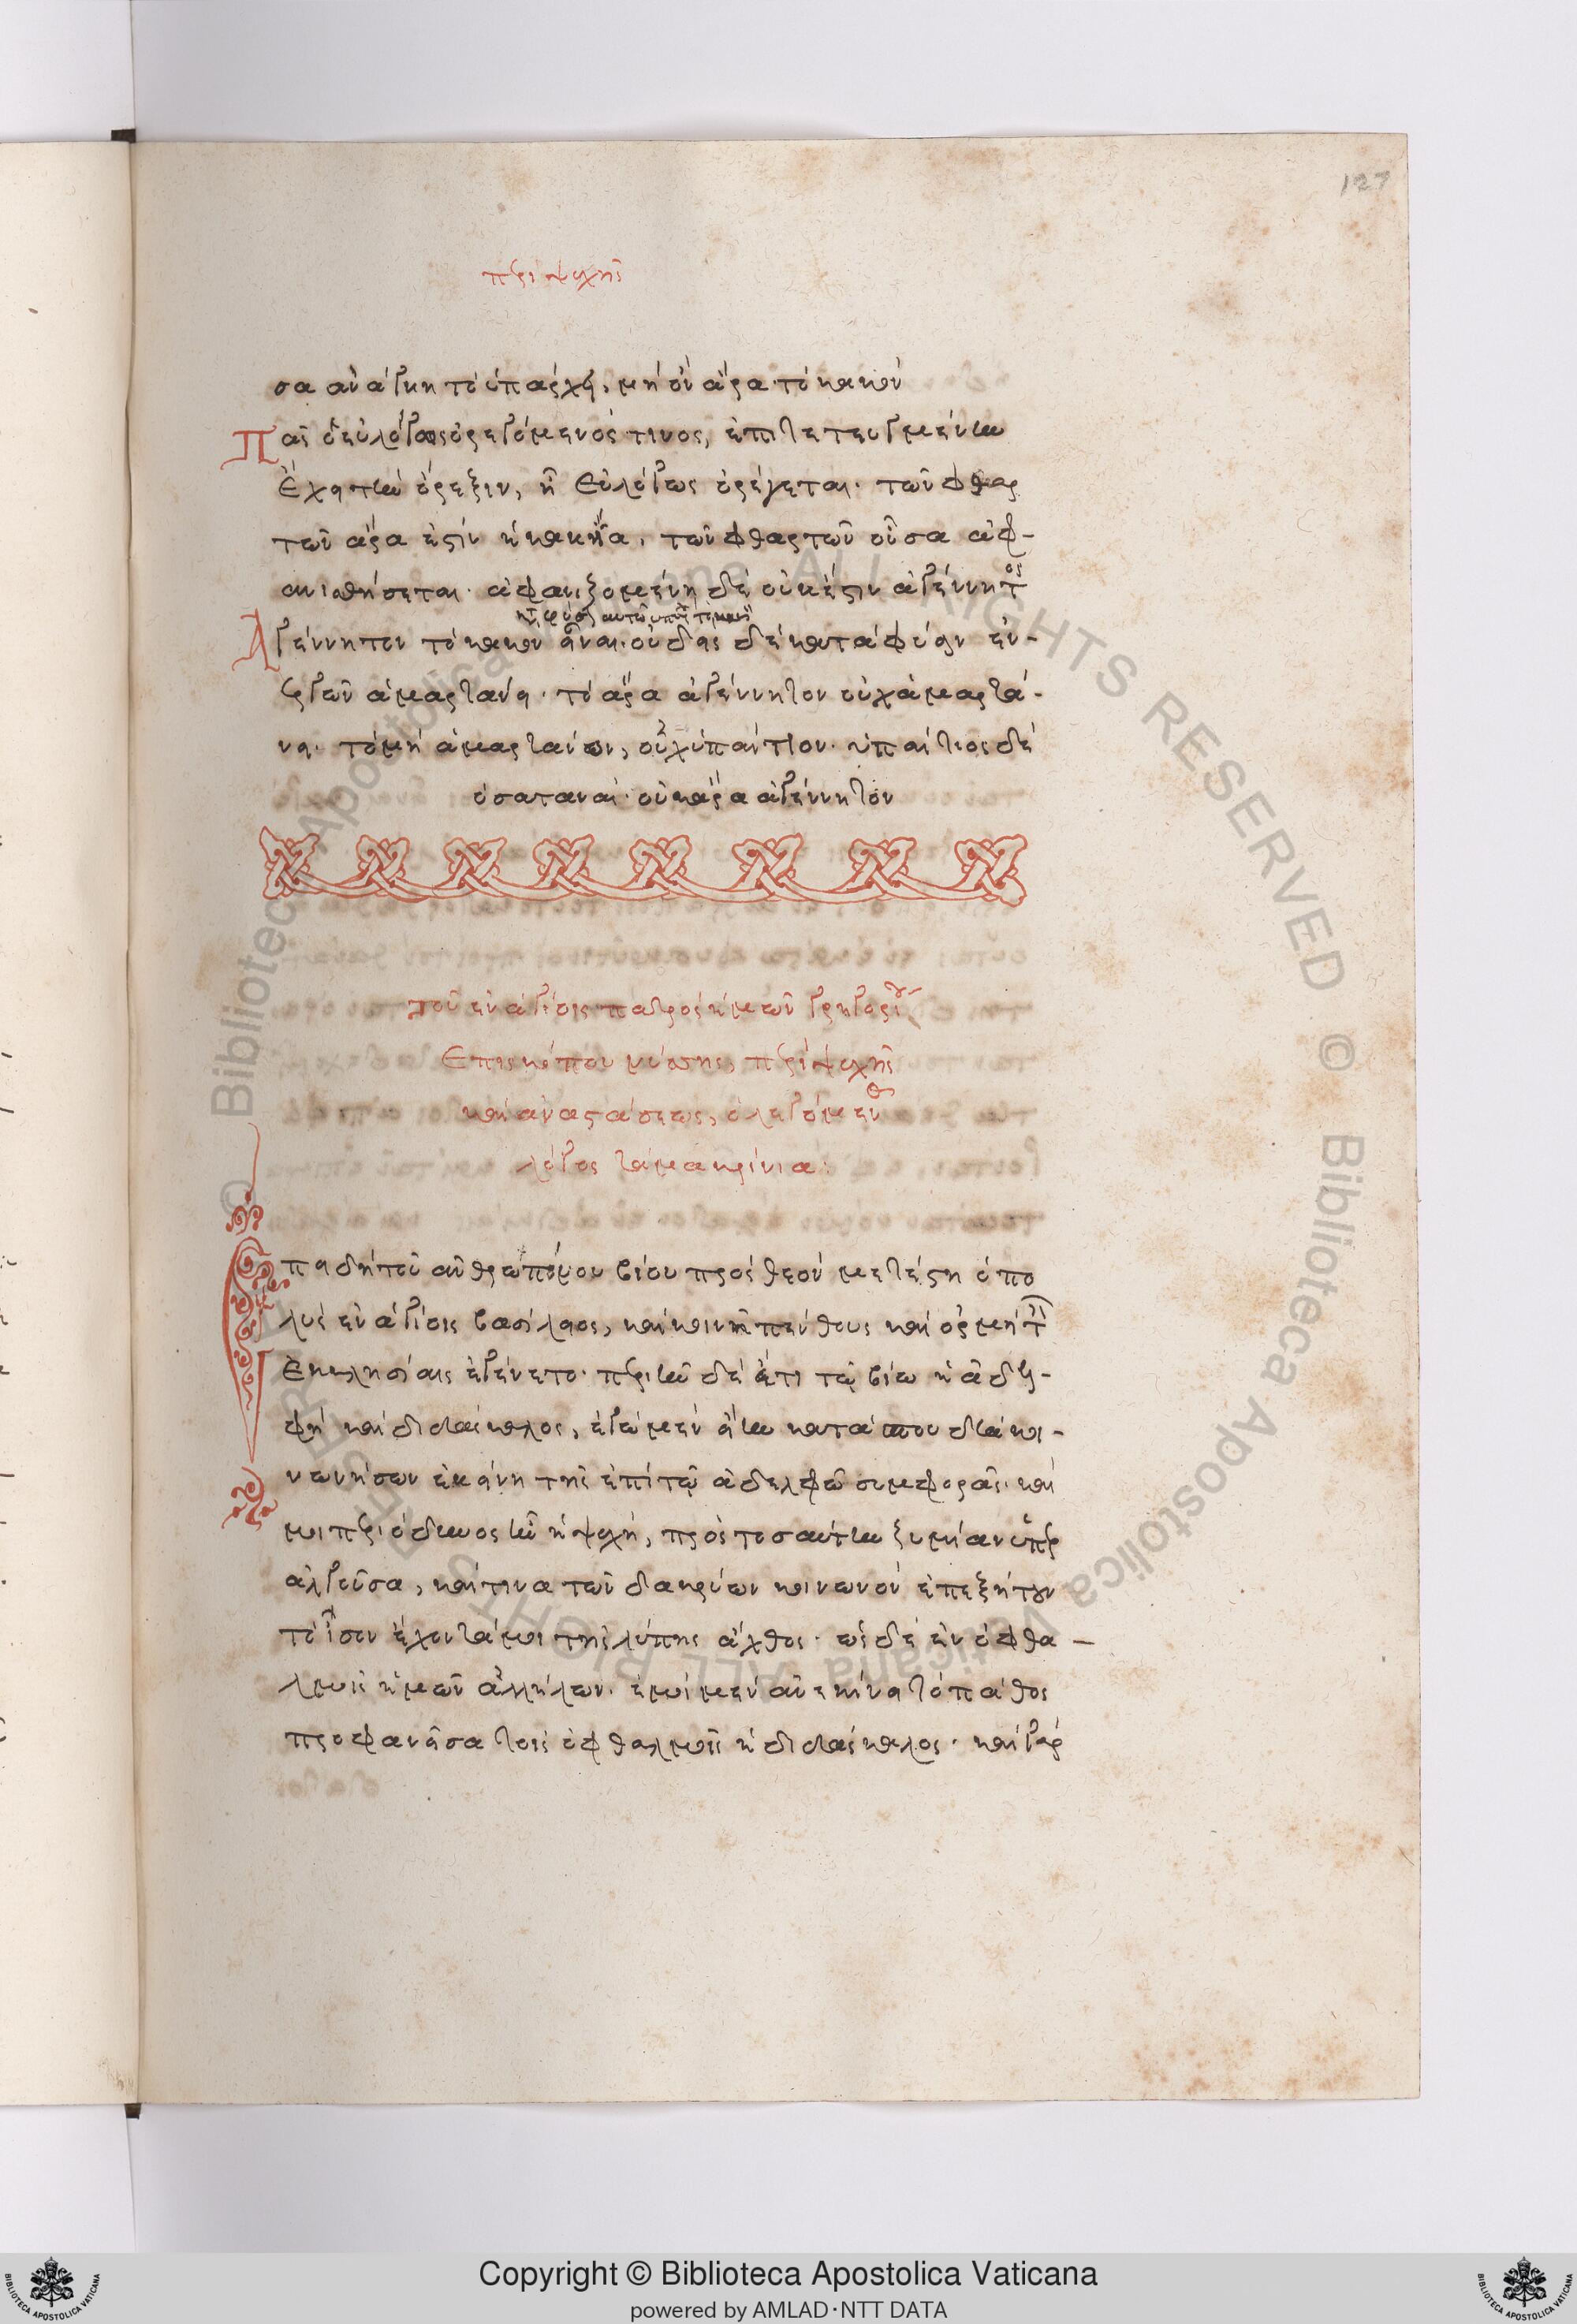 127
περὶ ψυχῆς
σα ἀνάγκη τὸ ὑπάρχειν, μὴ ὂν ἄρα τὸ κακόν
Πᾶς ὁ εὐλόγως ὀρεγόμενός τινος, ἐπιτετευγμένην
ἔχει τὴν ὄρεξιν, ἢ εὐλόγως ὀρέγεται. τῶν φθαρ
τῶν ἄρα ἐστὶν ἡ κακία, τῶν φθαρτῶν οὖσα ἀφ-
ανισθήσεται. ἀφανιζομένη δὲ οὐκ ἔστιν ἀγέννητος
Ἀγέννητον τὸ κακὸν εἶναι. οὐδεὶς δὲ κατὰ φύσιν ἐν-
εργῶν ἁμαρτάνει. τὸ ἄρα ἀγέννητον οὐχ ἁμαρτά-
νει. τὸ μὴ ἁμαρτάνον, οὐχ ὑπαίτιον. ὑπαίτιος δὲ
ὁ σατανᾶς. οὐκ ἄρα ἀγέννητον
τοῦ ἐν ἁγίοις πατρὸς ἡμῶν γρηγορίου
ἐπισκόπου νύσσης, περὶ ψυχῆς
καὶ ἀναστάσεως, ὁ λεγόμενος
λόγος τὰ μακρίνια:
Ἐπειδὴ τοῦ ἀνθρωπίνου βίου πρὸς θεὸν μετέστη ὁ πο
λὺς ἐν ἁγίοις βασίλειος, καὶ κοινὴ πένθους καὶ ὁρμὴ ταῖς
ἐκκλησίαις ἐγένετο. περιῆν δὲ ἔτι τῷ βίῳ ἡ ἀδελ-
φὴ καὶ διδάσκαλος, ἐγὼ μὲν ᾔειν κατὰ σπουδὴν κοι-
νωνήσων ἐκείνῃ τῆς ἐπὶ τῷ ἀδελφῷ συμφορᾶς. καὶ
μοι περιόδυνος ἦν ἡ ψυχή, πρὸς τοσαύτην ζημίαν ὑπερ
αλγοῦσα, καὶ τινα τῶν δακρύων κοινωνὸν ἐπεζήτουν
τὸ ἴσον ἔχοντά μοι τῆς λύπης ἄχθος. ὡς δὲ ἐν ὀφθα-
λμοῖς ἦμεν ἀλλήλων. ἐμοὶ μὲν ἀνεκίνει τὸ πάθος
προφανεῖσα τοῖς ὀφθαλμοῖς ἡ διδάσκαλος. καὶ γὰρ
Copyright © Biblioteca Apostolica Vaticana
powered by AMLAD·NTT DATA